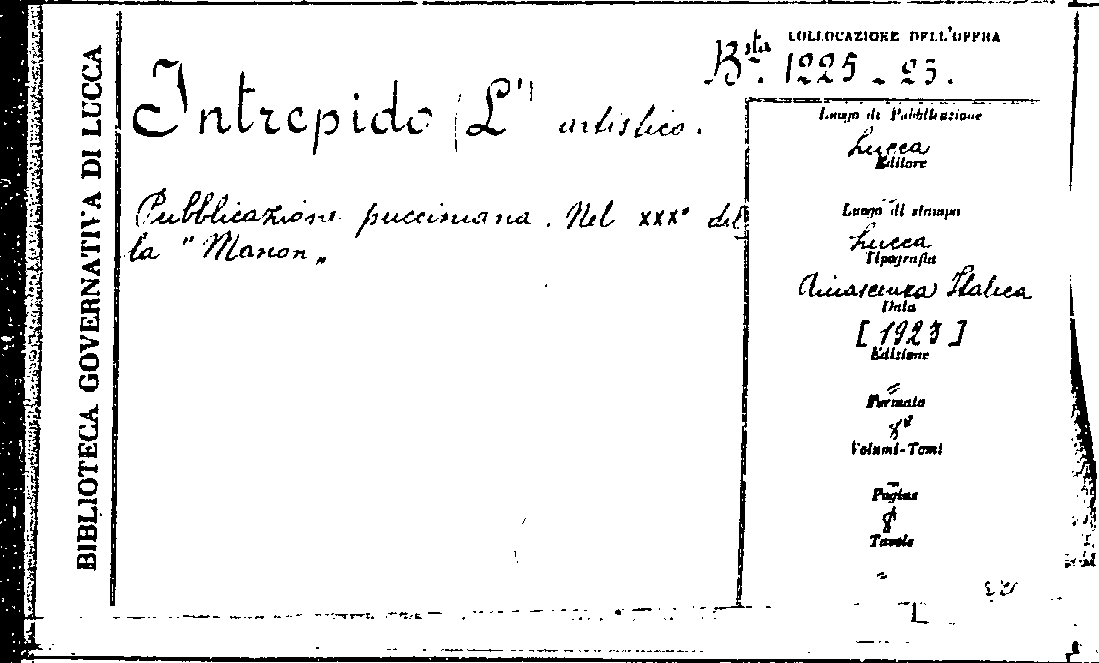 BIBLIOTECA GOVERNATIVA DI LUCCA
COLLOCAZIONE DELL'OPERA
Bsta. 1225 - 23.
Intrepido (L') artistico.
Pubblicazione pucciniana. Nel XXX° del
la "Manon"
Luogo di Pubblicazione
Lucca
Editore
Luogo di stampa
Lucca
Tipografia
Rinascenza Italica
Data
[1923]
Edizione
=
Formato
8°
Volumi-Tomi
=
Pagine
8
Tavole
=